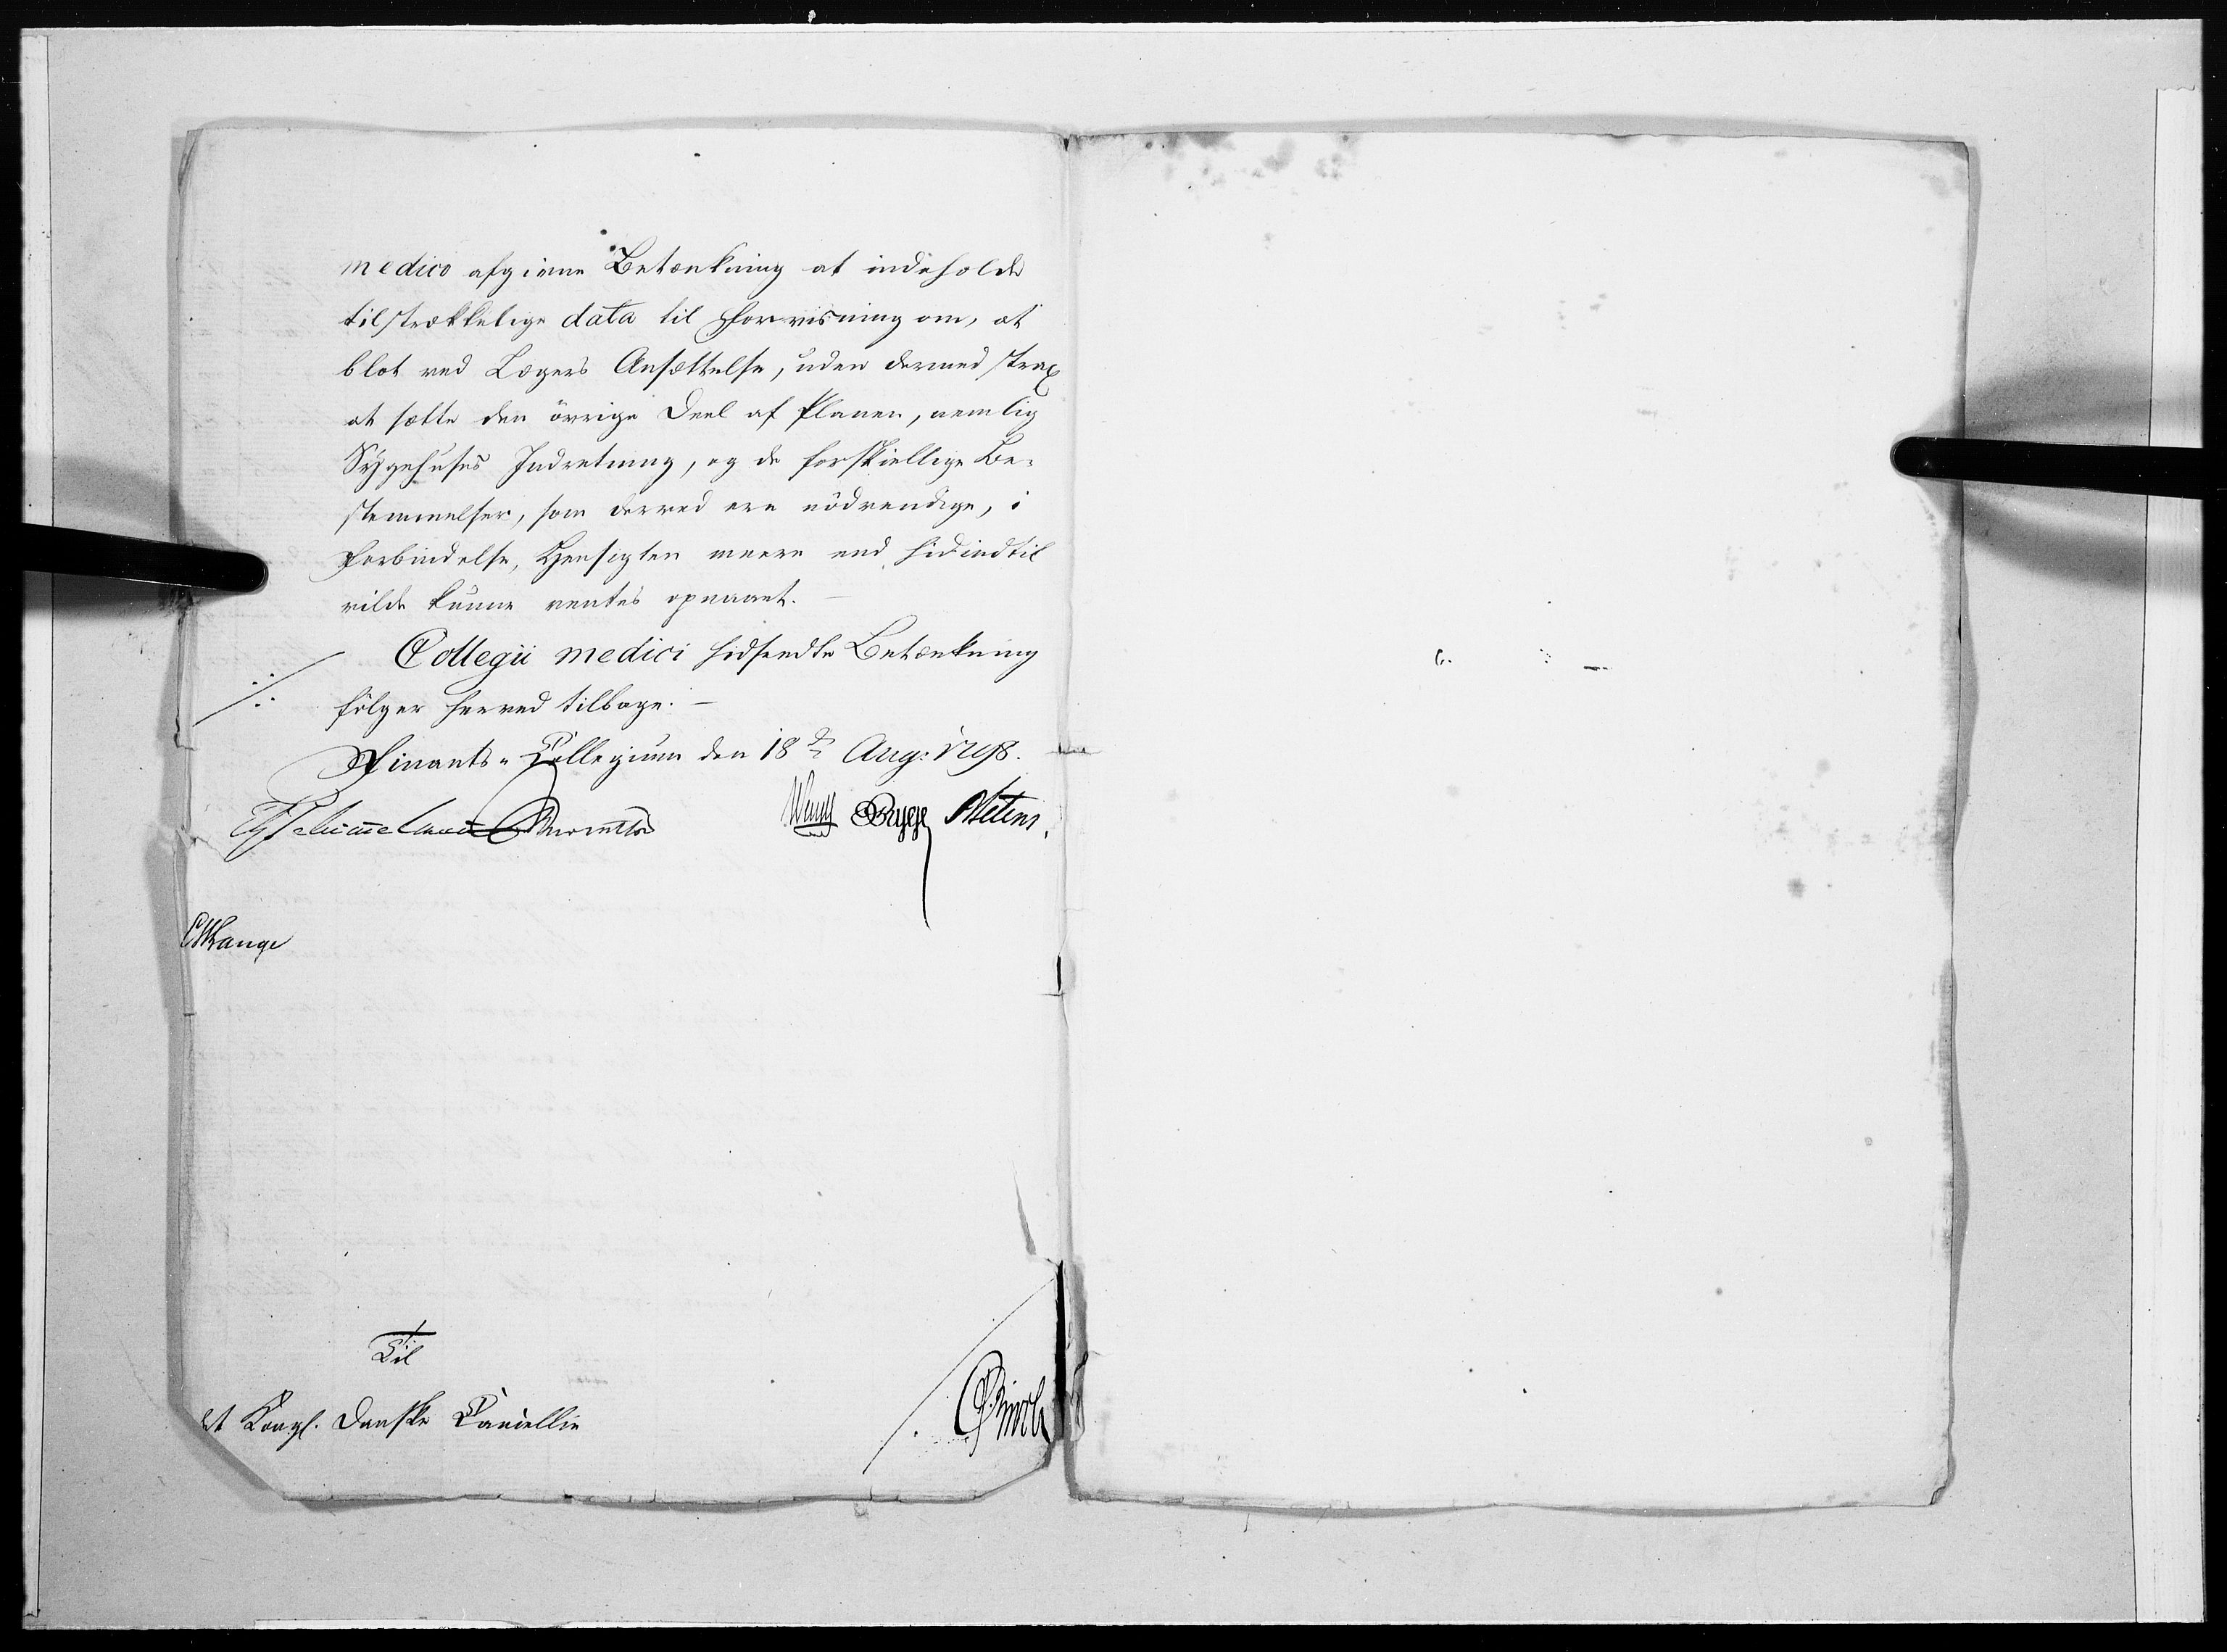 medico afgivne Betænkning at indeholde
tilstrækkelige data til Forvisning om, at
blot ved Lægers Ansættelse, uden dermed strax
at sætte den övrige Deel af Planen, nemlig
Sygehuses Indretning, og de forskiellige Be-
stemmelser, som derved ere nödvendige, i
Forbindelse, Hensigten meere end hidindtil
vilde kunne ventes opnaaet. –
Collegii medici hidsendte Betænkning
fölger herved tilbage. –
Finants-Collegium den 18de Aug: 1798.
Schimmelmann Wendt Brygge
Lange
Til
det Kongl. Danske Cancellie